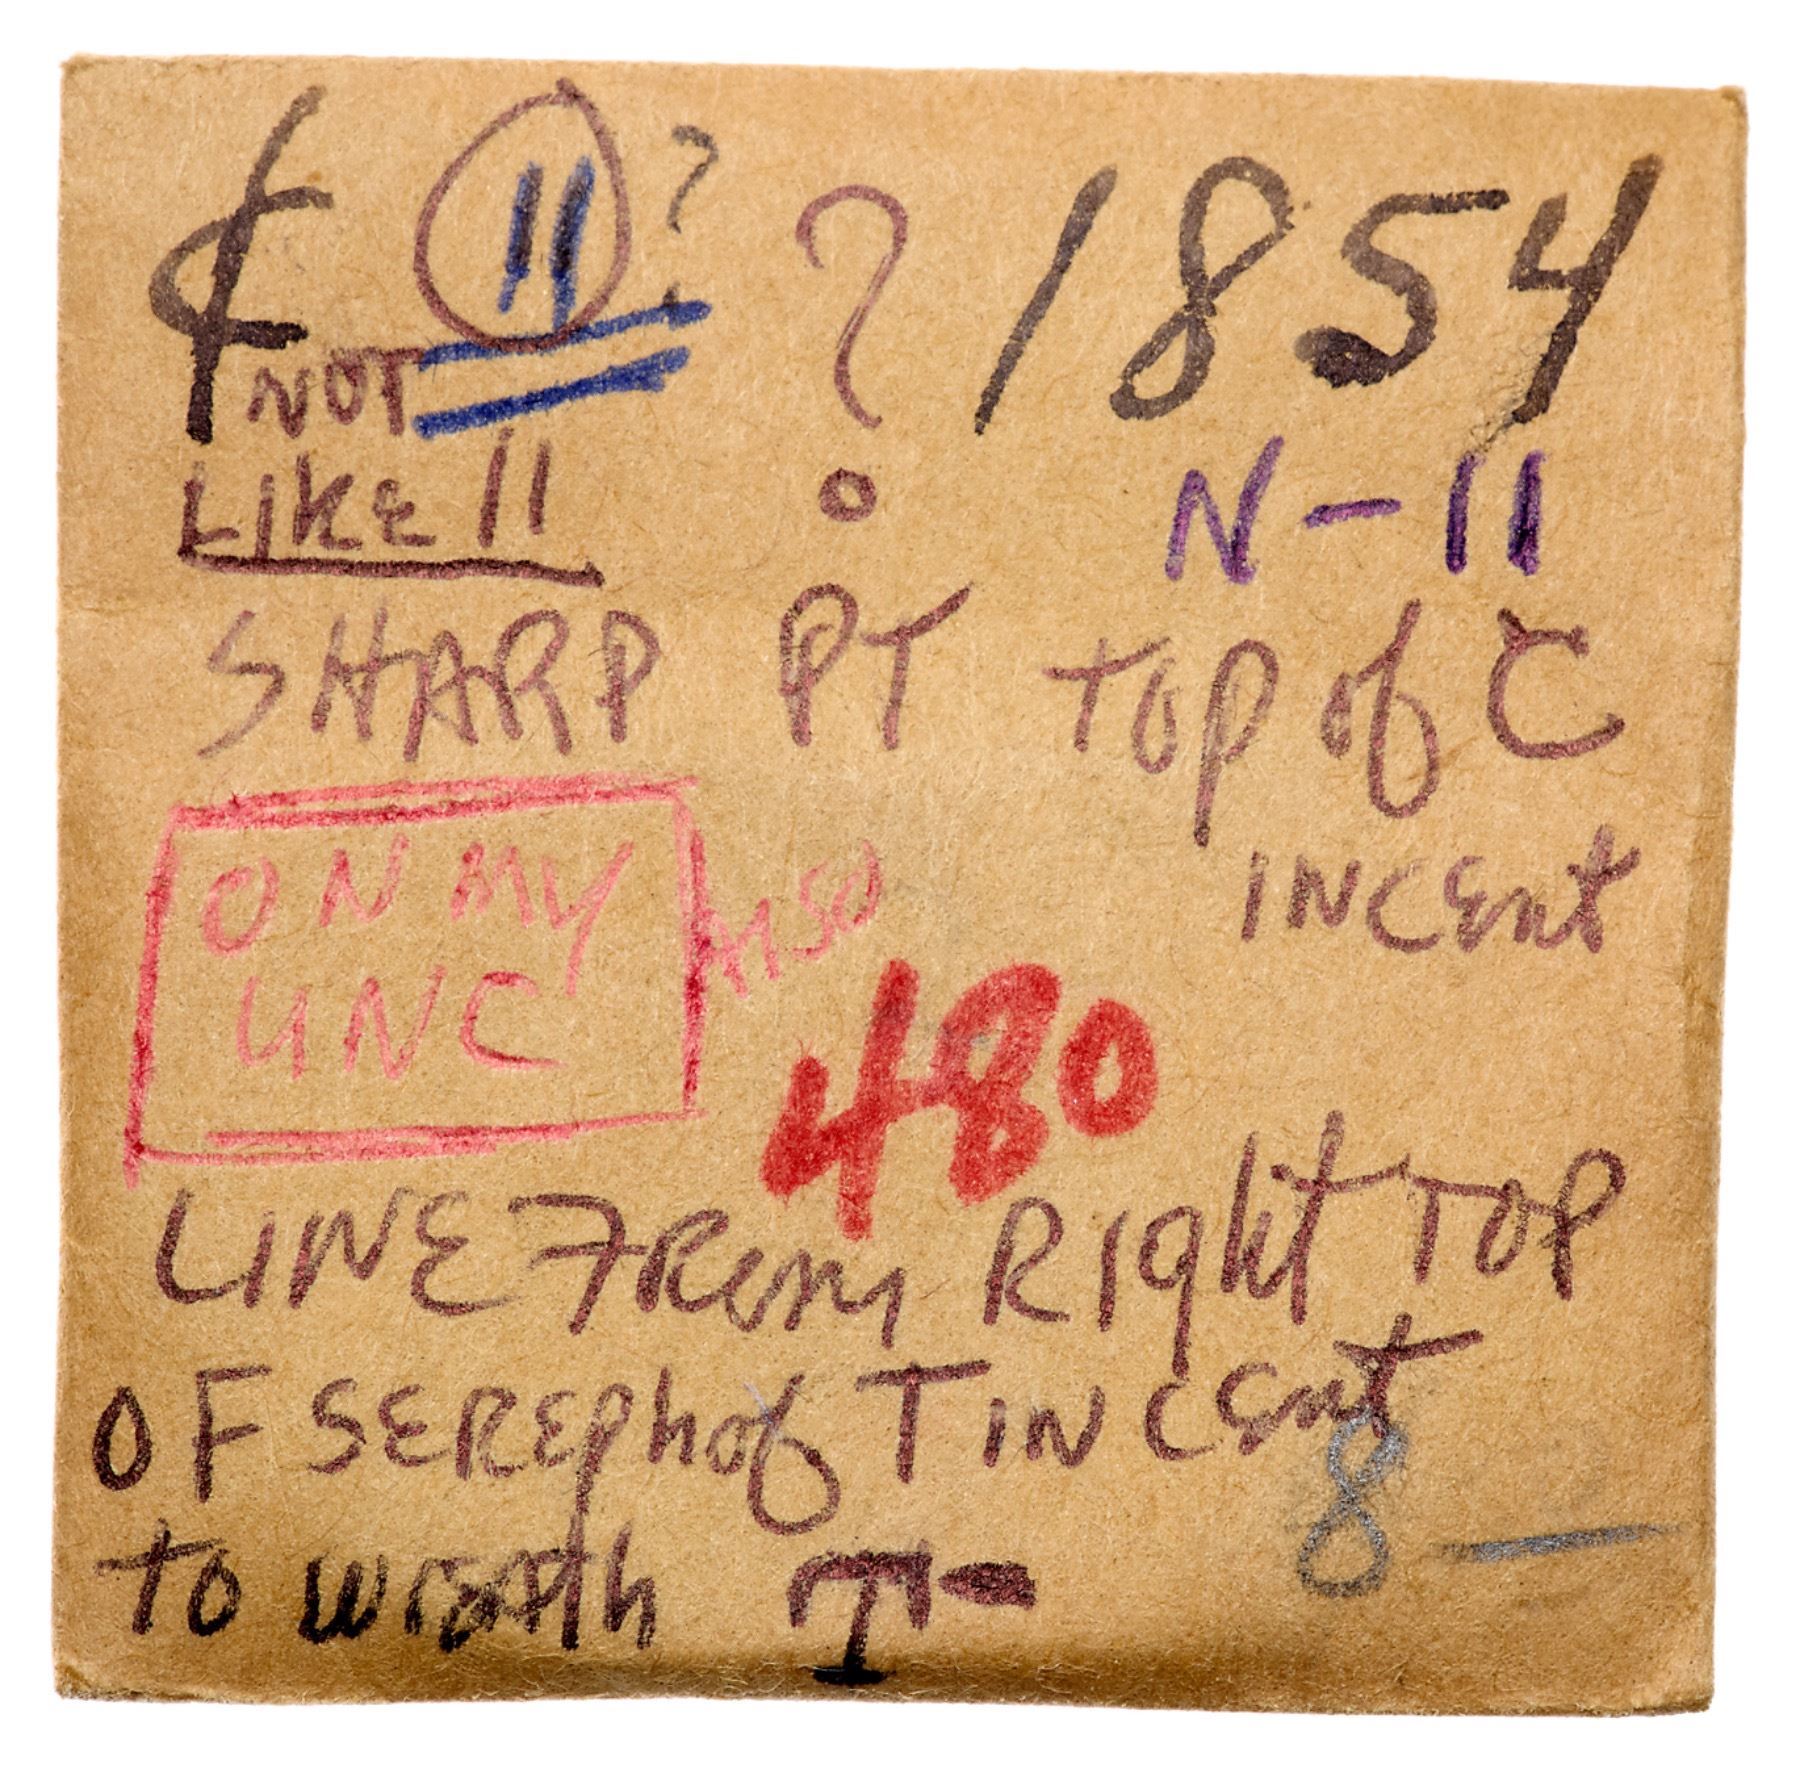 ¢ 11 ? ? 1854
NOT
LIKE 11
N-11
SHARP PT TOP of C
IN CENT
ON MY
UNC
ALSO
480
LINE FROM Right TOP
OF SEREPh of T IN CENT
8 —
TO WREATH T-